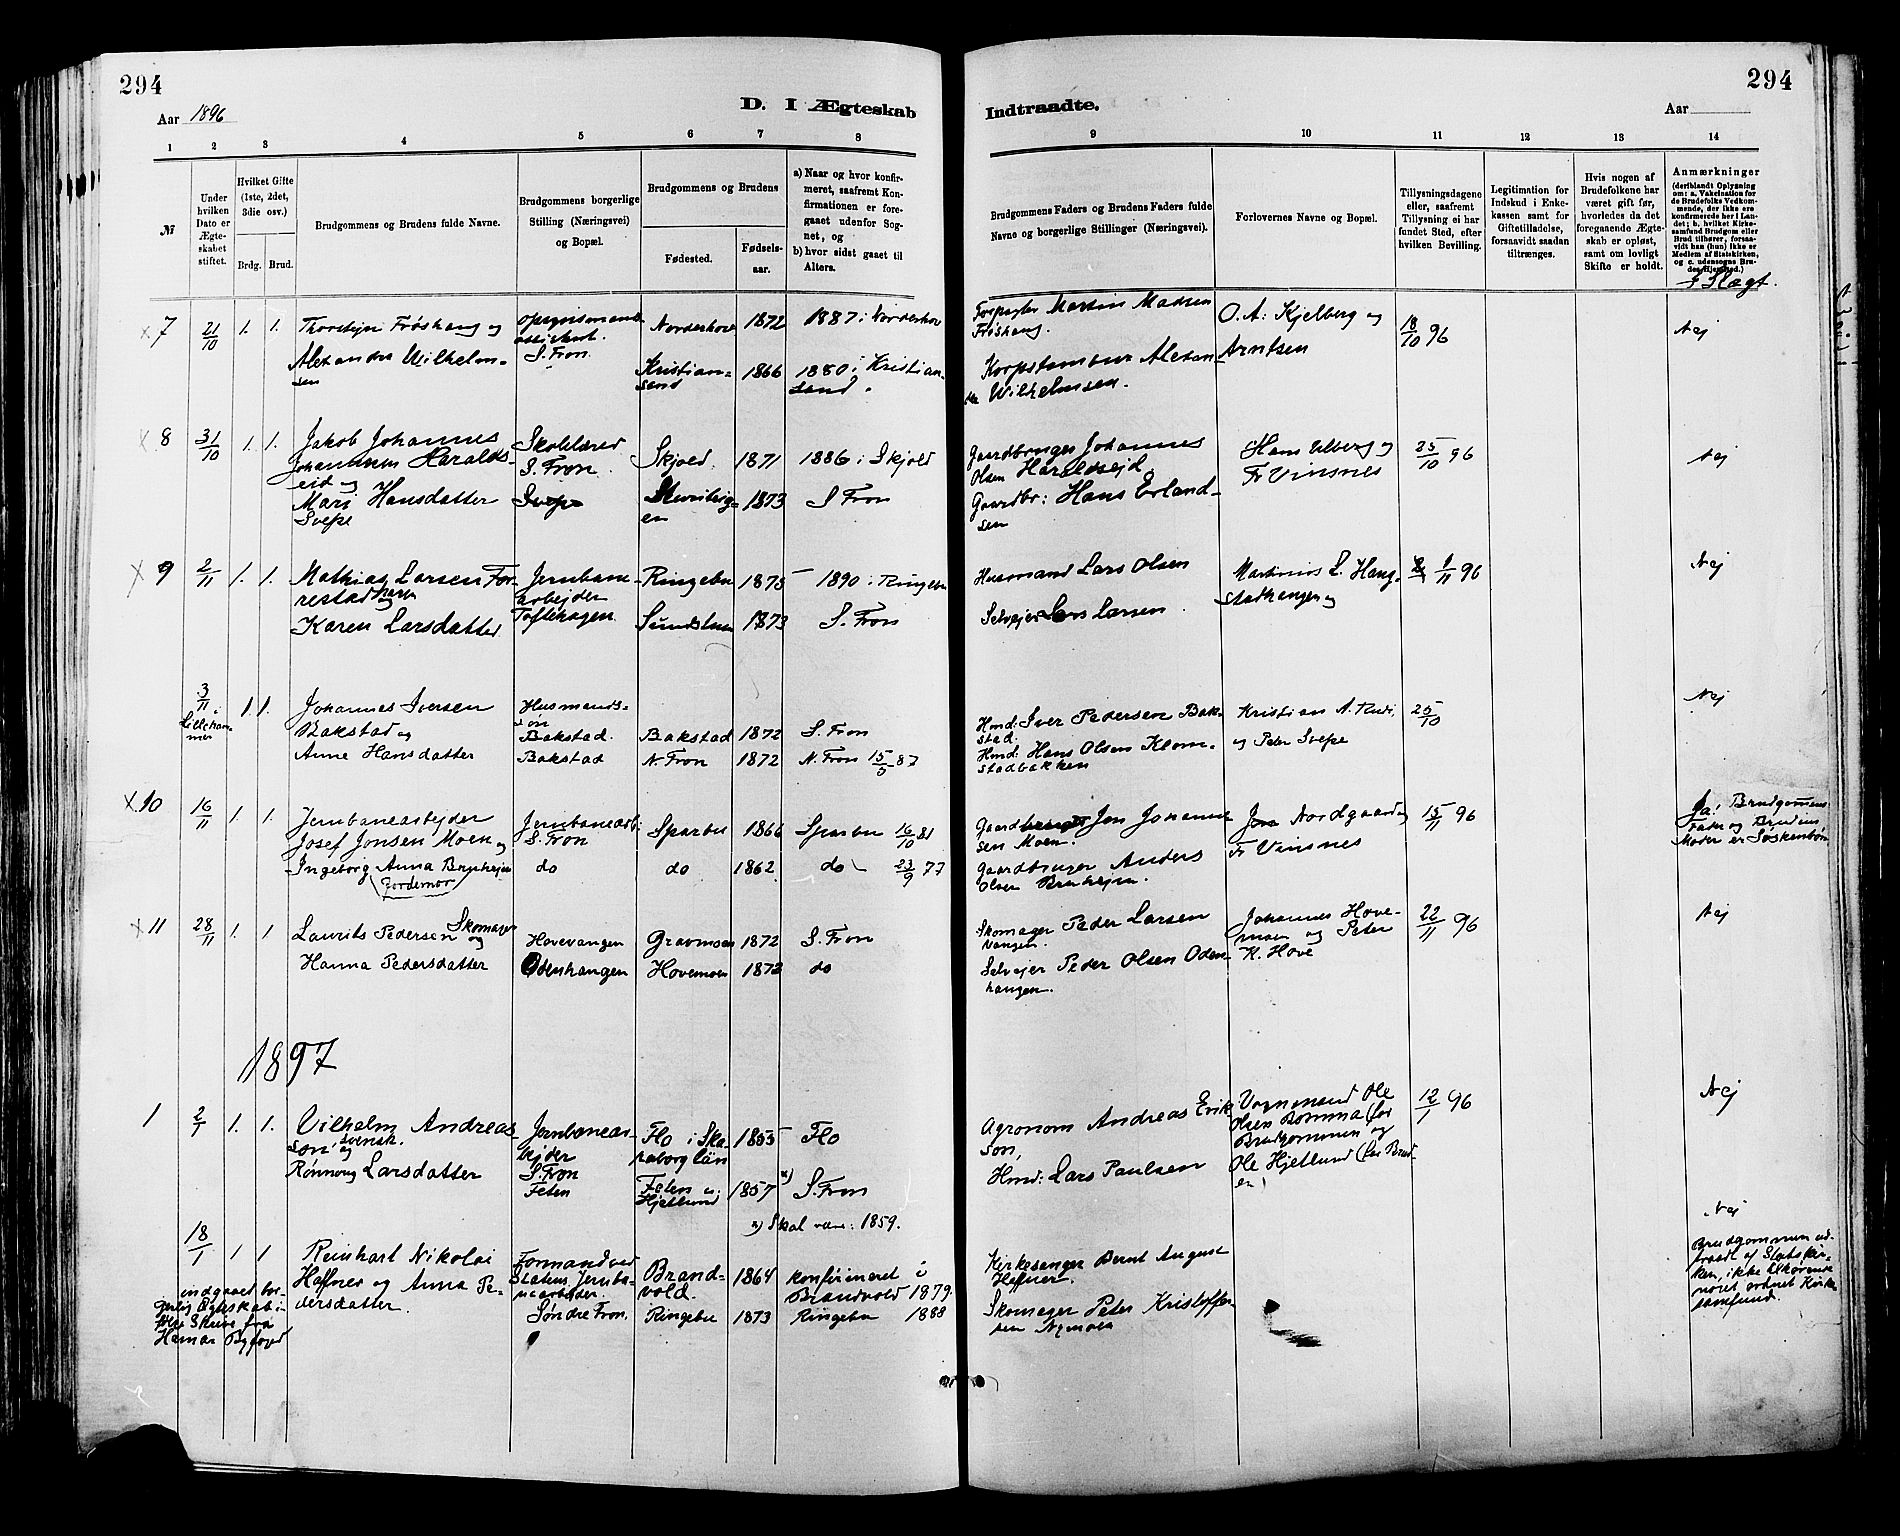 294
294
Aar 1896
D. I Ægteskab
Indtraadte.
Aar
1 2 3 4 5 6 7 8
9 10 11 12 13 14
№
Under hvilken Dato er Ægteskabet stiftet.
Hvilket Gifte (1ste, 2det, 3die osv.)
Brdg. Brud.
Brudgommens og Brudens fulde Navne.
Brudgommens borgerlige Stilling (Næringsvei) og Bopæl.
Brudgommens og Brudens
Fødested.
Fødselsaar.
a) Naar og hvor konfirmeret, saafremt Konfirmationen er foregaaet udenfor Sognet, og
b) hvor sidst gaaet til Alters.
Brudgommens Faders og Brudens Faders fulde Navne og borgerlige Stillinger (Næringsvei).
Forlovernes Navne og Bopæl.
Tillysningsdagene eller, saafremt Tillysning ei har fundet Sted, efter hvilken Bevilling.
Legitimation for Indskud i Enkekassen samt for Giftetilladelse, forsaavidt saadan tiltrænges.
Hvis nogen af Brudefolkene har været gift før, hvorledes da det foregaaende Ægteskab er opløst, samt om lovligt Skifte er holdt.
Anmærkninger (deriblandt Oplysning om: a. Vakcination for de Brudefolks Vedkommende, der ikke ere konfirmerede her i Landet; b. hvilket Kirkesamfund Brudgom eller Brud tilhører, forsaavidt han (hun) ikke er Medlem af Statskirken, og c. udensogns Brudes Hjemsted.)
f Slægt.
x 7 21/10 1. 1. Thorstein Frøshaug og Opsynsmands assistent. S. Fron. Norderhov 1872 1887 i Norderhov
Forpagter Martin Madsen Frøshaug. O. A. Kjelberg og Arntsen 18/10 96 Nej
Alexandra Wilhelmsen Kristiansand 1866 1880 i Kristiansand.
Korpstambur Alexander Wilhelmsen.
x 8 31/10 1. 1. Jakob Johannes Johannesen Haraldseid og Skolelærer S. Fron. Skjold 1871 1886 i Skjold
Gaardbruger Johannes Olsen Haraldseid Hans Ulberg og Fr Vinsnes 25/10 96 Nej
Mari Hansdatter Svepe Svepe 1873 S Fron
Gaardbr: Hans Erlandsen
x 9 2/11 1. 1. Mathias Larsen Forrestad og Jernbanearbejder Ringebu 1875 1890 i Ringebu
Husmand Lars Olsen Martinius L. Haugstadhaugen og 1/11 96 Nej
Karen Larsdatter Toftehagen. 1873 S. Fron
Selvejer Lars Larsen.
3/11 i Lillehammer 1. 1. Johannes Iversen Bakstad og Husmandssøn Bakstad. Bakstad 1872 S. Fron
Hmd: Iver Pedersen Bakstad. Kristian A. Rudi, og Peter Svepe 25/10 Nej
Anne Hansdatter Bakstad N. Fron 1872 N. Fron 15/5 87
Hmd: Hans Olsen Klomstadbakken
x 10 16/11 1. 1. Jernbanearbejder Josef Jonsen Moen og Jernbanearb. S. Fron Sparbu 1866 Sparbu 16/10 81
Gaardbruger Jon Johannesen Moen. Jon Nordgaard og Fr Vinsnes 15/11 96 Ja! Brudgomens Fader og Brudens Moder er Søskenbørn
Ingeborg Anna (Jordemor) do do 1862 do 23/9 77
Gaardbruger Anders Olsen
x 11 28/11 1. 1 Laurits Pedersen Skomager og Hovevangen 1872 S. Fron
Skomager Peder Larsen vangen. Johannes Hovemoen og Peter K. Hove 22/11 96 Nej
Hanna Pedersdatter Odenhaugen Hovemoen 1872 do
Selvejer Peder Olsen Odenhaugen.
1897
1 2/1 1. 1. Vilhelm Andreasson, svensk. og Jernbanearbejder S. Fron Flo i Skaraborg län 1855 Flo
Agronom Andreas Erikson, Vognmand Ole Olsen Bomma (for Brudgommen og Ole Hjetlund (for Bruden) 12/1 96 Nej
Rønnaug Larsdatter Feten Feten u. Hjetlund 1857 x) S. Fron
Hmd: Lars Paulsen
x) Skal være: 1859.
18/1 1 1 Reinhart Nikolai Haffner og Formand ved Statens Jernbanearbeider. Brandvold. 1864 konfirmeret i Brandvold 1879.
Kirkesanger Bernt August Heffner. Nej
Anna Pedersdatter. Søndre Fron. Ringebu 1873 Ringebu 1888
Skomager Peter Kristoffersen Nymoen
indgaaet borgerlig Ægteskab ifølge Skrive fra Hamar Byfoged
Brudgommen udtraadt af Statskirken, ikke tilhørende noget ordnet Kirkesamfund.